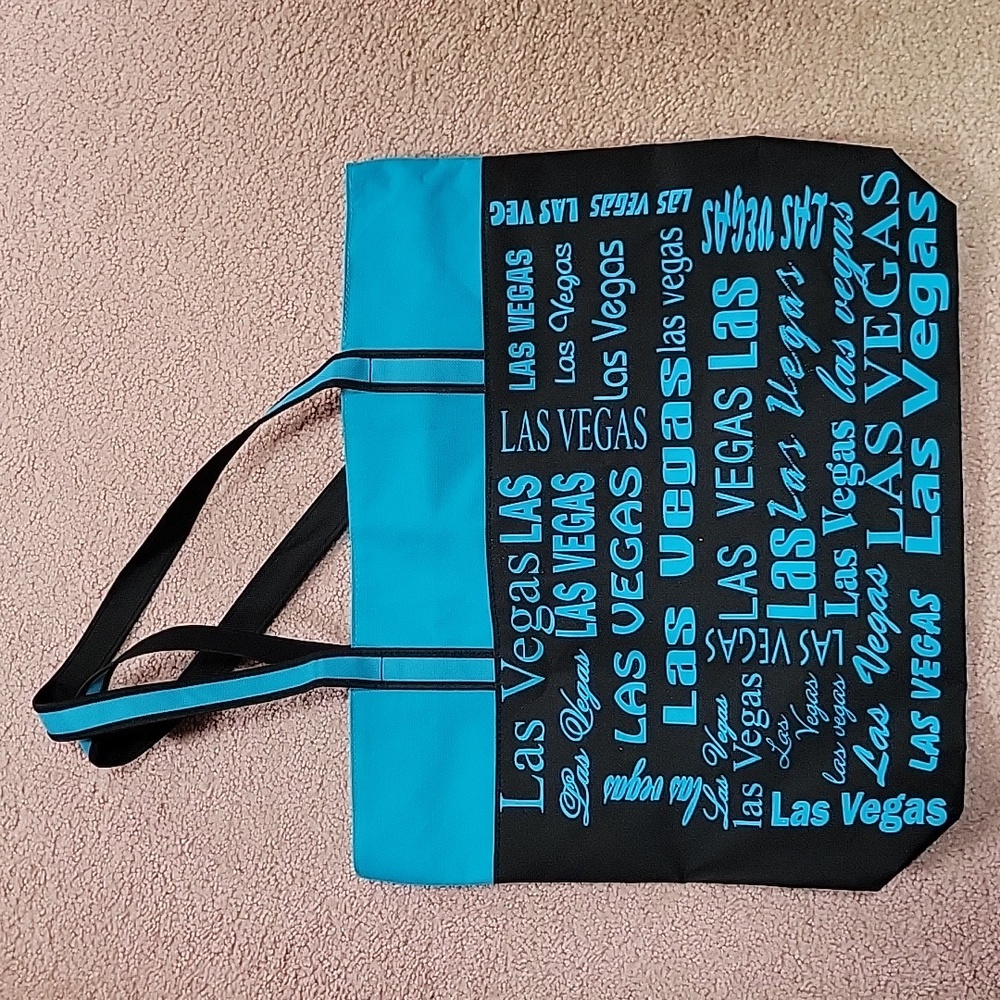 Las Vegas LAS
LAS VEGAS
LAS VEG
Las Vegas
LAS VEGAS
Las Vegas
LAS VEGAS
las vegas
LAS VEGAS
Las Vegas
LAS VEGAS
Las Vegas las vegas
LAS VEGAS
las vegas
Las Vegas
LAS VEGAS Las
LAS VEGAS
las Vegas
LAS VEGAS
Las
Vegas
Las Las Vegas
LAS VEGAS
las vegas
Las Vegas las vegas
Las Vegas LAS VEGAS
Las Vegas
LAS VEGAS
Las Vegas